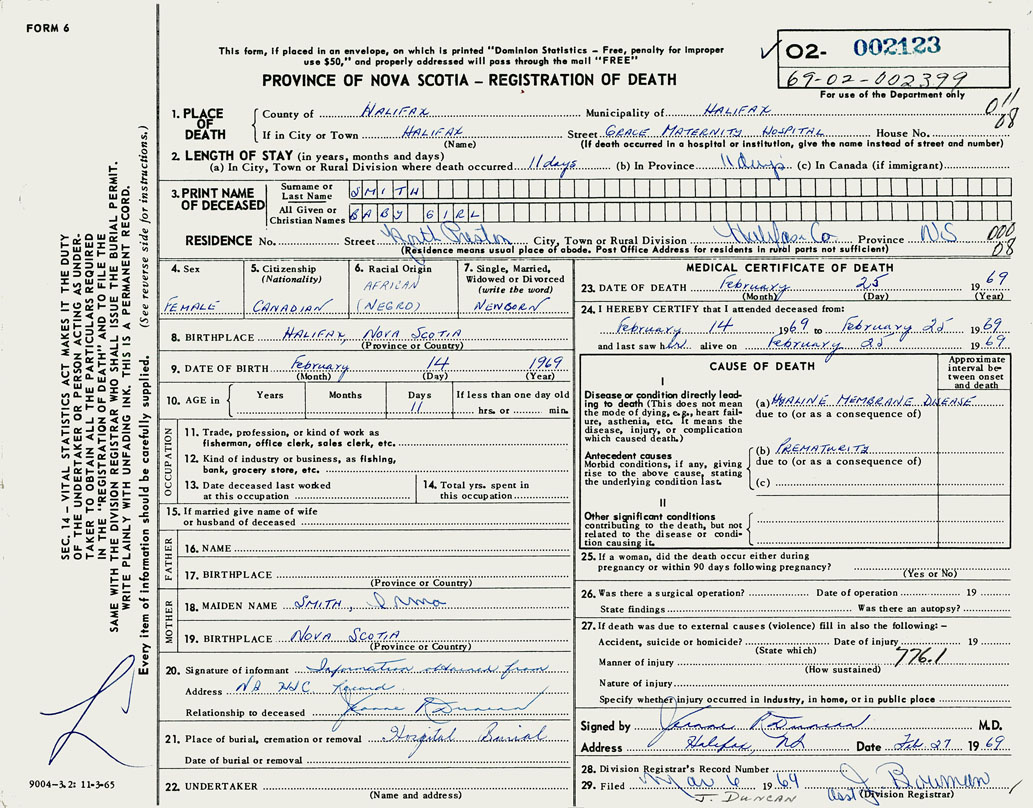 FORM 6
This form, if placed in an envelope, on which is printed "Dominion Statistics – Free, penalty for improper
use $50," and properly addressed will pass through the mail "FREE"
PROVINCE OF NOVA SCOTIA – REGISTRATION OF DEATH
✓ O2- 002123
69-02-002399
For use of the Department only
011
08
1. PLACE OF DEATH
County of HALIFAX Municipality of HALIFAX
If in City or Town HALIFAX Street GRACE MATERNITY HOSPITAL House No.
(Name) (If death occurred in a hospital or institution, give the name instead of street and number)
2. LENGTH OF STAY (in years, months and days)
(a) In City, Town or Rural Division where death occurred 11 days (b) In Province 11 days (c) In Canada (if immigrant)
3. PRINT NAME OF DECEASED
Surname or Last Name SMITH
All Given or Christian Names BABY GIRL
RESIDENCE No. Street North Preston City, Town or Rural Division Halifax Co Province NS 000
(Residence means usual place of abode. Post Office Address for residents in rural parts not sufficient) 08
4. Sex
FEMALE
5. Citizenship
(Nationality)
CANADIAN
6. Racial Origin
AFRICAN
(NEGRO)
7. Single, Married,
Widowed or Divorced
(write the word)
NEWBORN
8. BIRTHPLACE HALIFAX, NOVA SCOTIA
(Province or Country)
9. DATE OF BIRTH February 14 1969
(Month) (Day) (Year)
10. AGE in
Years Months Days If less than one day old
11 hrs. or min.
OCCUPATION
11. Trade, profession, or kind of work as
fisherman, office clerk, sales clerk, etc.
12. Kind of industry or business, as fishing,
bank, grocery store, etc.
13. Date deceased last worked
at this occupation
14. Total yrs. spent in
this occupation
15. If married give name of wife
or husband of deceased
FATHER
16. NAME
17. BIRTHPLACE
(Province or Country)
MOTHER
18. MAIDEN NAME SMITH, Irma
19. BIRTHPLACE NOVA SCOTIA
(Province or Country)
20. Signature of informant Information obtained from
Address
Relationship to deceased Duncan
21. Place of burial, cremation or removal Hospital Burial
Date of burial or removal
22. UNDERTAKER
(Name and address)
MEDICAL CERTIFICATE OF DEATH
23. DATE OF DEATH February 25 1969
(Month) (Day) (Year)
24. I HEREBY CERTIFY that I attended deceased from:
February 14 1969 to February 25 1969
and last saw her alive on February 25 1969
CAUSE OF DEATH
Approximate
interval be-
tween onset
and death
I
Disease or condition directly lead-
ing to death (This does not mean
the mode of dying, e.g., heart fail-
ure, asthenia, etc. It means the
disease, injury, or complication
which caused death.)
(a) HYALINE MEMBRANE DISEASE
due to (or as a consequence of)
Antecedent causes
Morbid conditions, if any, giving
rise to the above cause, stating
the underlying condition last.
(b) PREMATURITY
due to (or as a consequence of)
(c)
II
Other significant conditions
contributing to the death, but not
related to the disease or condi-
tion causing it.
25. If a woman, did the death occur either during
pregnancy or within 90 days following pregnancy?
(Yes or No)
26. Was there a surgical operation? Date of operation 19
State findings Was there an autopsy?
27. If death was due to external causes (violence) fill in also the following: –
Accident, suicide or homicide? Date of injury 19
(State which)
776.1
Manner of injury
(How sustained)
Nature of injury
Specify whether injury occurred in industry, in home, or in public place
Signed by Duncan M.D.
Address Halifax, NS Date Feb 27 1969
28. Division Registrar's Record Number
29. Filed Mar 6 1969 J. Bowman
J. DUNCAN (Division Registrar)
9004-3.2: 11-3-65
SEC. 14 – VITAL STATISTICS ACT MAKES IT THE DUTY
OF THE UNDERTAKER OR PERSON ACTING AS UNDER-
TAKER TO OBTAIN ALL THE PARTICULARS REQUIRED
IN THE "REGISTRATION OF DEATH" AND TO FILE THE
SAME WITH THE DIVISION REGISTRAR WHO SHALL ISSUE THE BURIAL PERMIT.
WRITE PLAINLY WITH UNFADING INK. THIS IS A PERMANENT RECORD.
Every item of information should be carefully supplied. (See reverse side for instructions.)